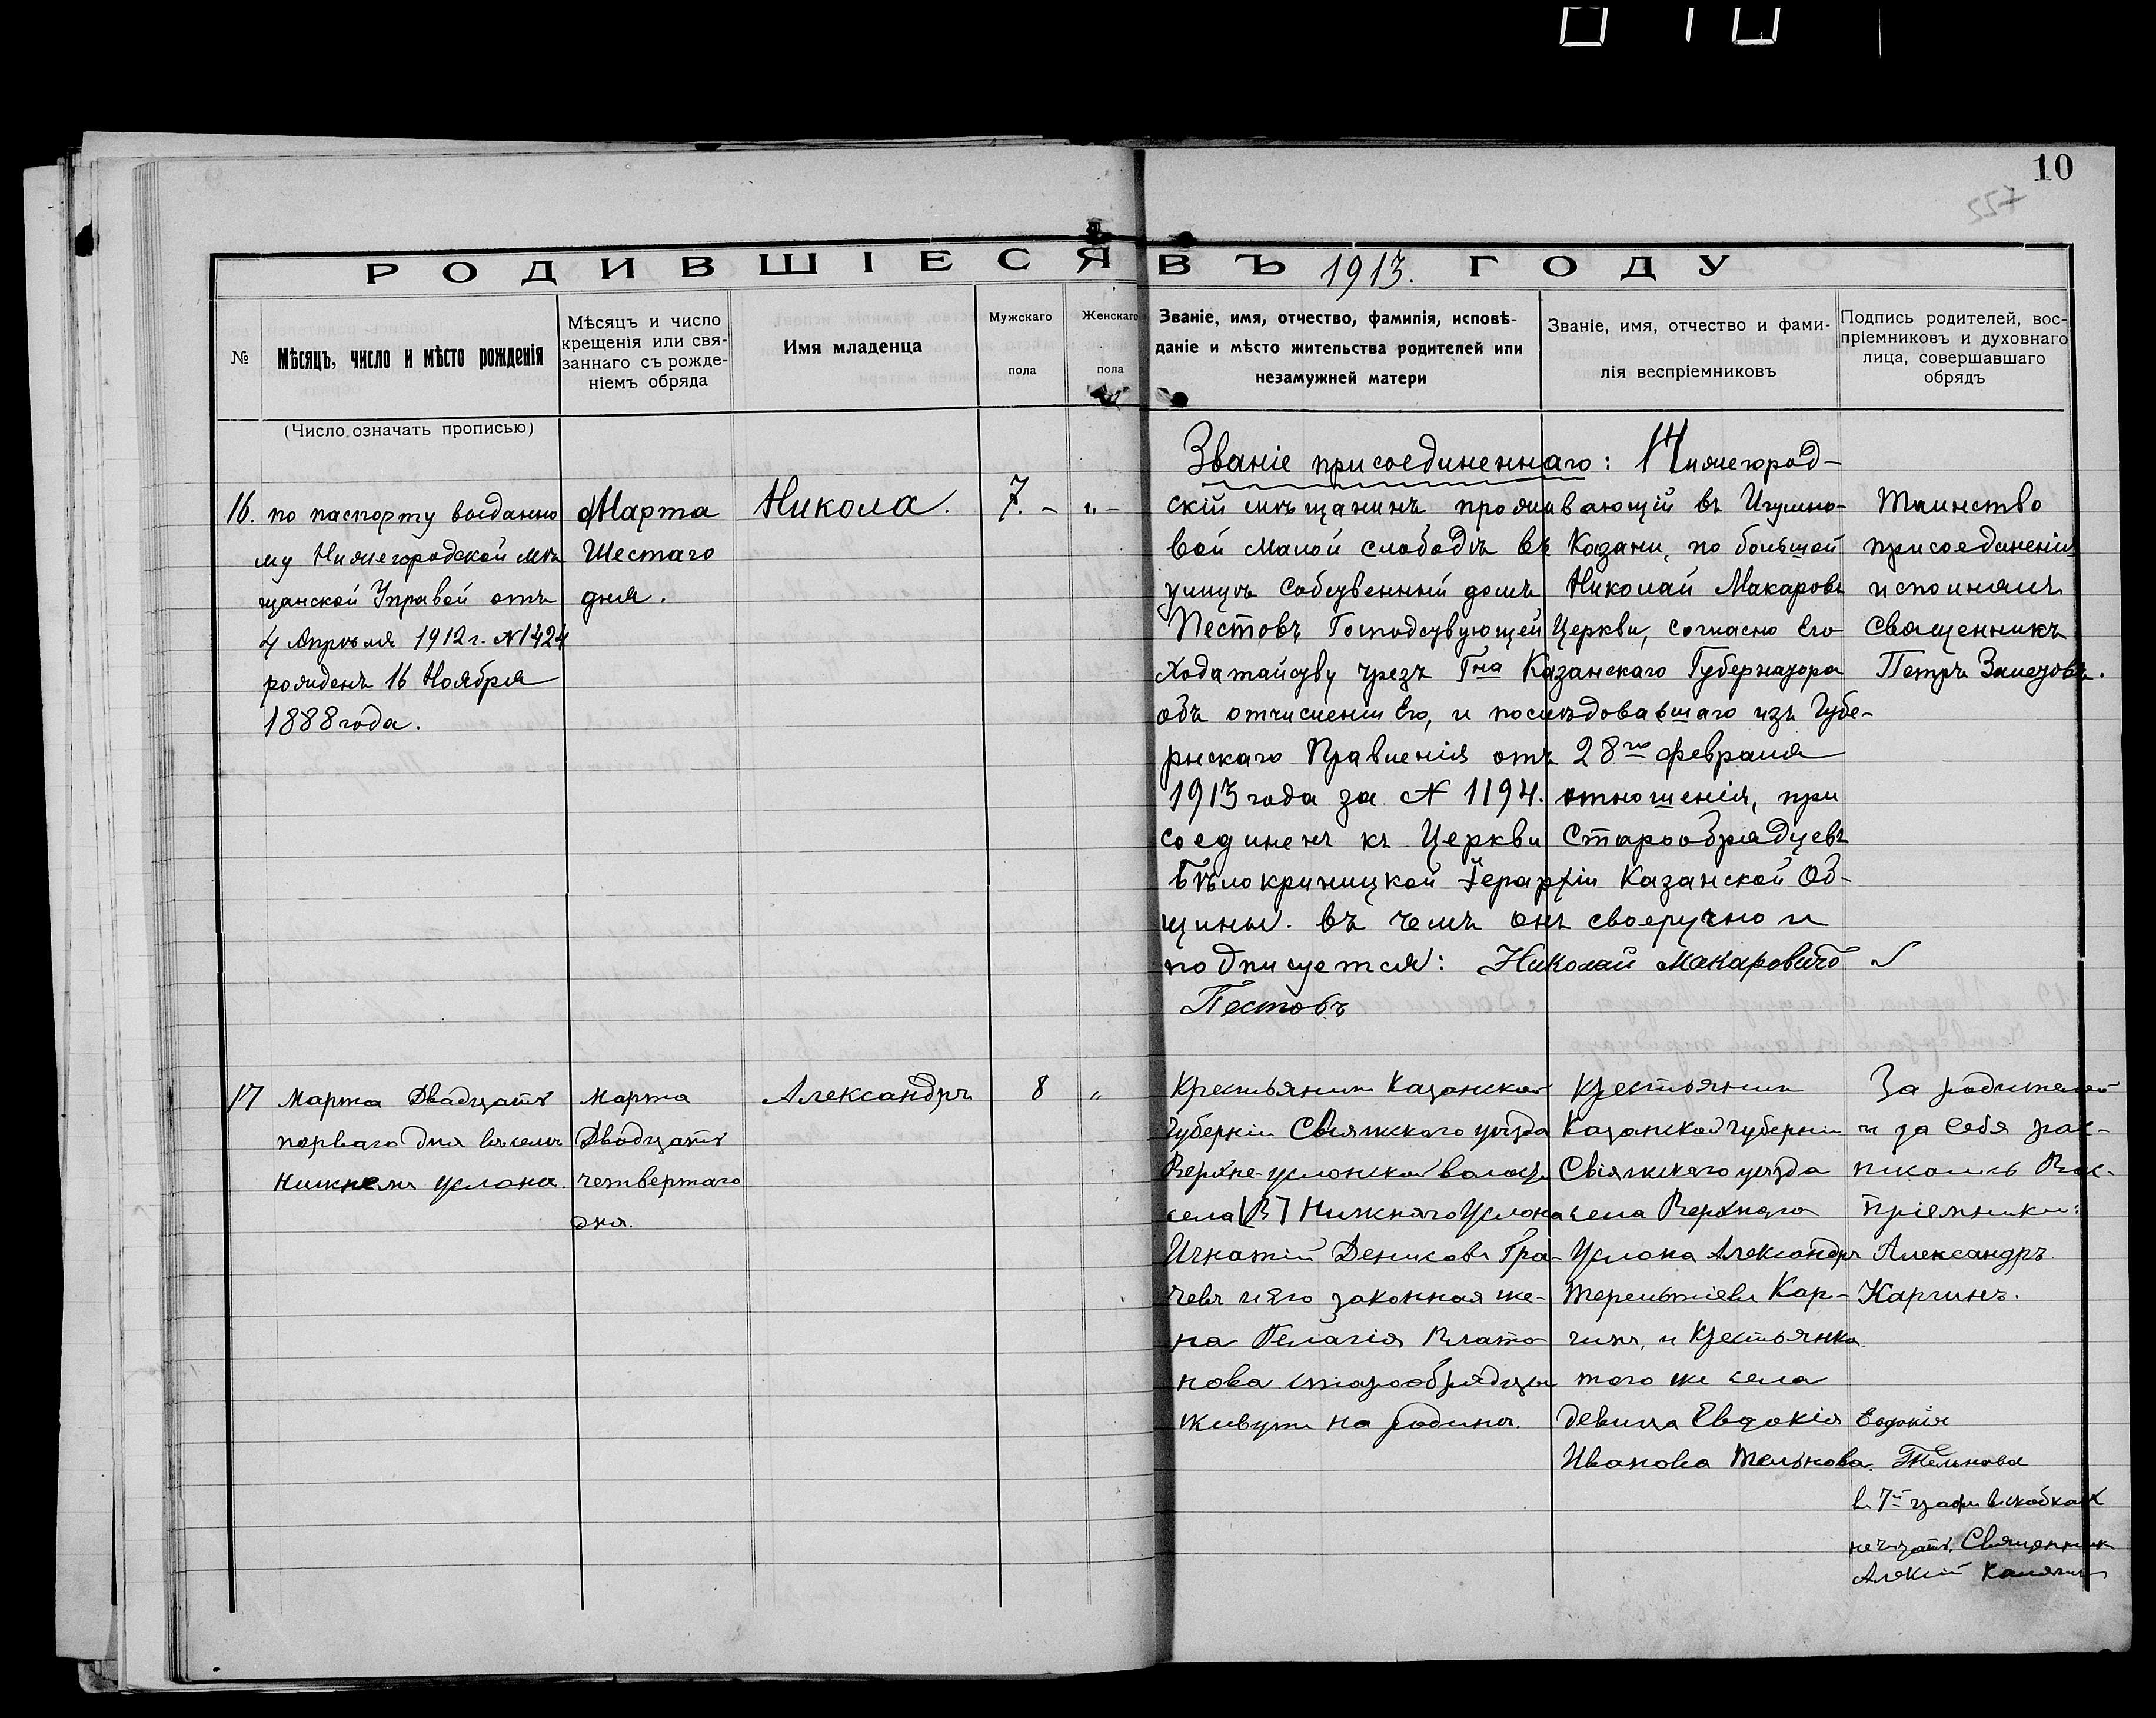 10
557
РОДИВШІЕСЯ ВЪ 1913. ГОДУ
№
Мѣсяцъ, число и мѣсто рожденія
Мѣсяцъ и число
крещенія или свя-
заннаго съ рожде-
ніемъ обряда
Имя младенца
Мужскаго
пола
Женскаго
пола
Званіе, имя, отчество, фамилія, исповѣ-
даніе и мѣсто жительства родителей или
незамужней матери
Званіе, имя, отчество и фами-
лія веспріемниковъ
Подпись родителей, вос-
пріемниковъ и духовнаго
лица, совершавшаго
обрядъ
(Число означать прописью)
16. по паспорту выданно
му Нижегородской мѣ
щанской Управой отъ
4 Апрѣля 1912 г. № 1424
рожденъ 16 Ноября
1888 года.
Марта
Шестаго
дня.
Никола.
7. –
„ –
Званіе присоединеннаго: Нижегород-
скій мѣщанинъ проживающій въ Игумно-
вой малой слободѣ въ Казани, по большой
улицѣ собственный домъ Николай Макаровъ
Пестовъ Господствующей Церкви, согласно Его
ходатайству чрезъ Гна Казанскаго Губернатора
объ отчисленіи Его, и послѣдовавшаго изъ Губе-
рнскаго Правленія отъ 28го февраля
1913 года за № 1194. отношенія, при
соединенъ къ Церкви Старообрядцевъ
Бѣлокриницкой Іерархіи Казанской Об-
щины. въ чемъ онъ своеручно и
подписуется: Николай Макаровичъ
Пестовъ
Таинство
присоединенія
исполнялъ
Священникъ
Петръ Залетовъ.
17 Марта Двадцать
перваго дня въ селѣ
Нижнемъ Услонѣ.
Марта
Двадцать
четвертаго
дня.
Александръ
8
„
Крестьянинъ Казанской
Губерніи Свіяжскаго уѣзда
Верхне-услонской волости
села [В] Нижняго Услона
Игнатій Денисовъ Гра-
чевъ и его законная же-
на Пелагія Плато
нова старообрядцы
живутъ на родинѣ.
Крестьянинъ
Казанской губерніи
Свіяжскаго уѣзда
села Верхняго
Услона Александръ
Терентіевъ Кар-
гинъ, и Крестьянка
того же села
девица Евдокія
Иванова Тельнова.
За родителей
и за себя рас-
писались Вос-
пріемники:
Александръ
Каргинъ.
Евдокія
Тельнова
въ 7й графѣ въ скобкахъ
не читать. Священникъ
Алексій Калягинъ